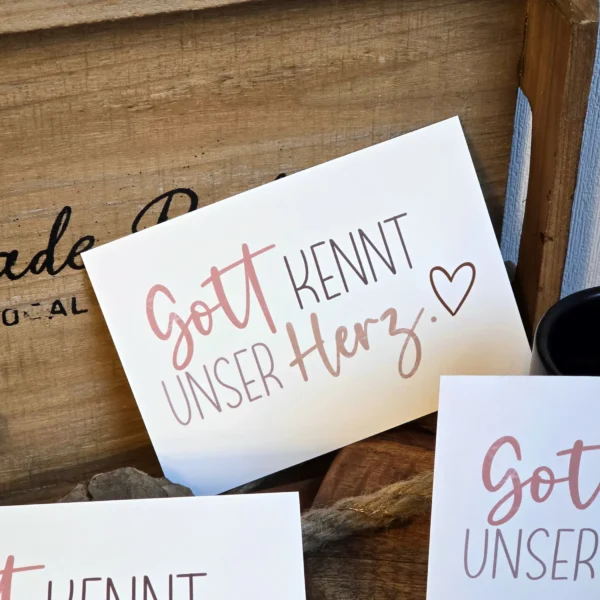 ade
OCAL
Gott KENNT
UNSER Herz.
Got
UNSER
KENNT